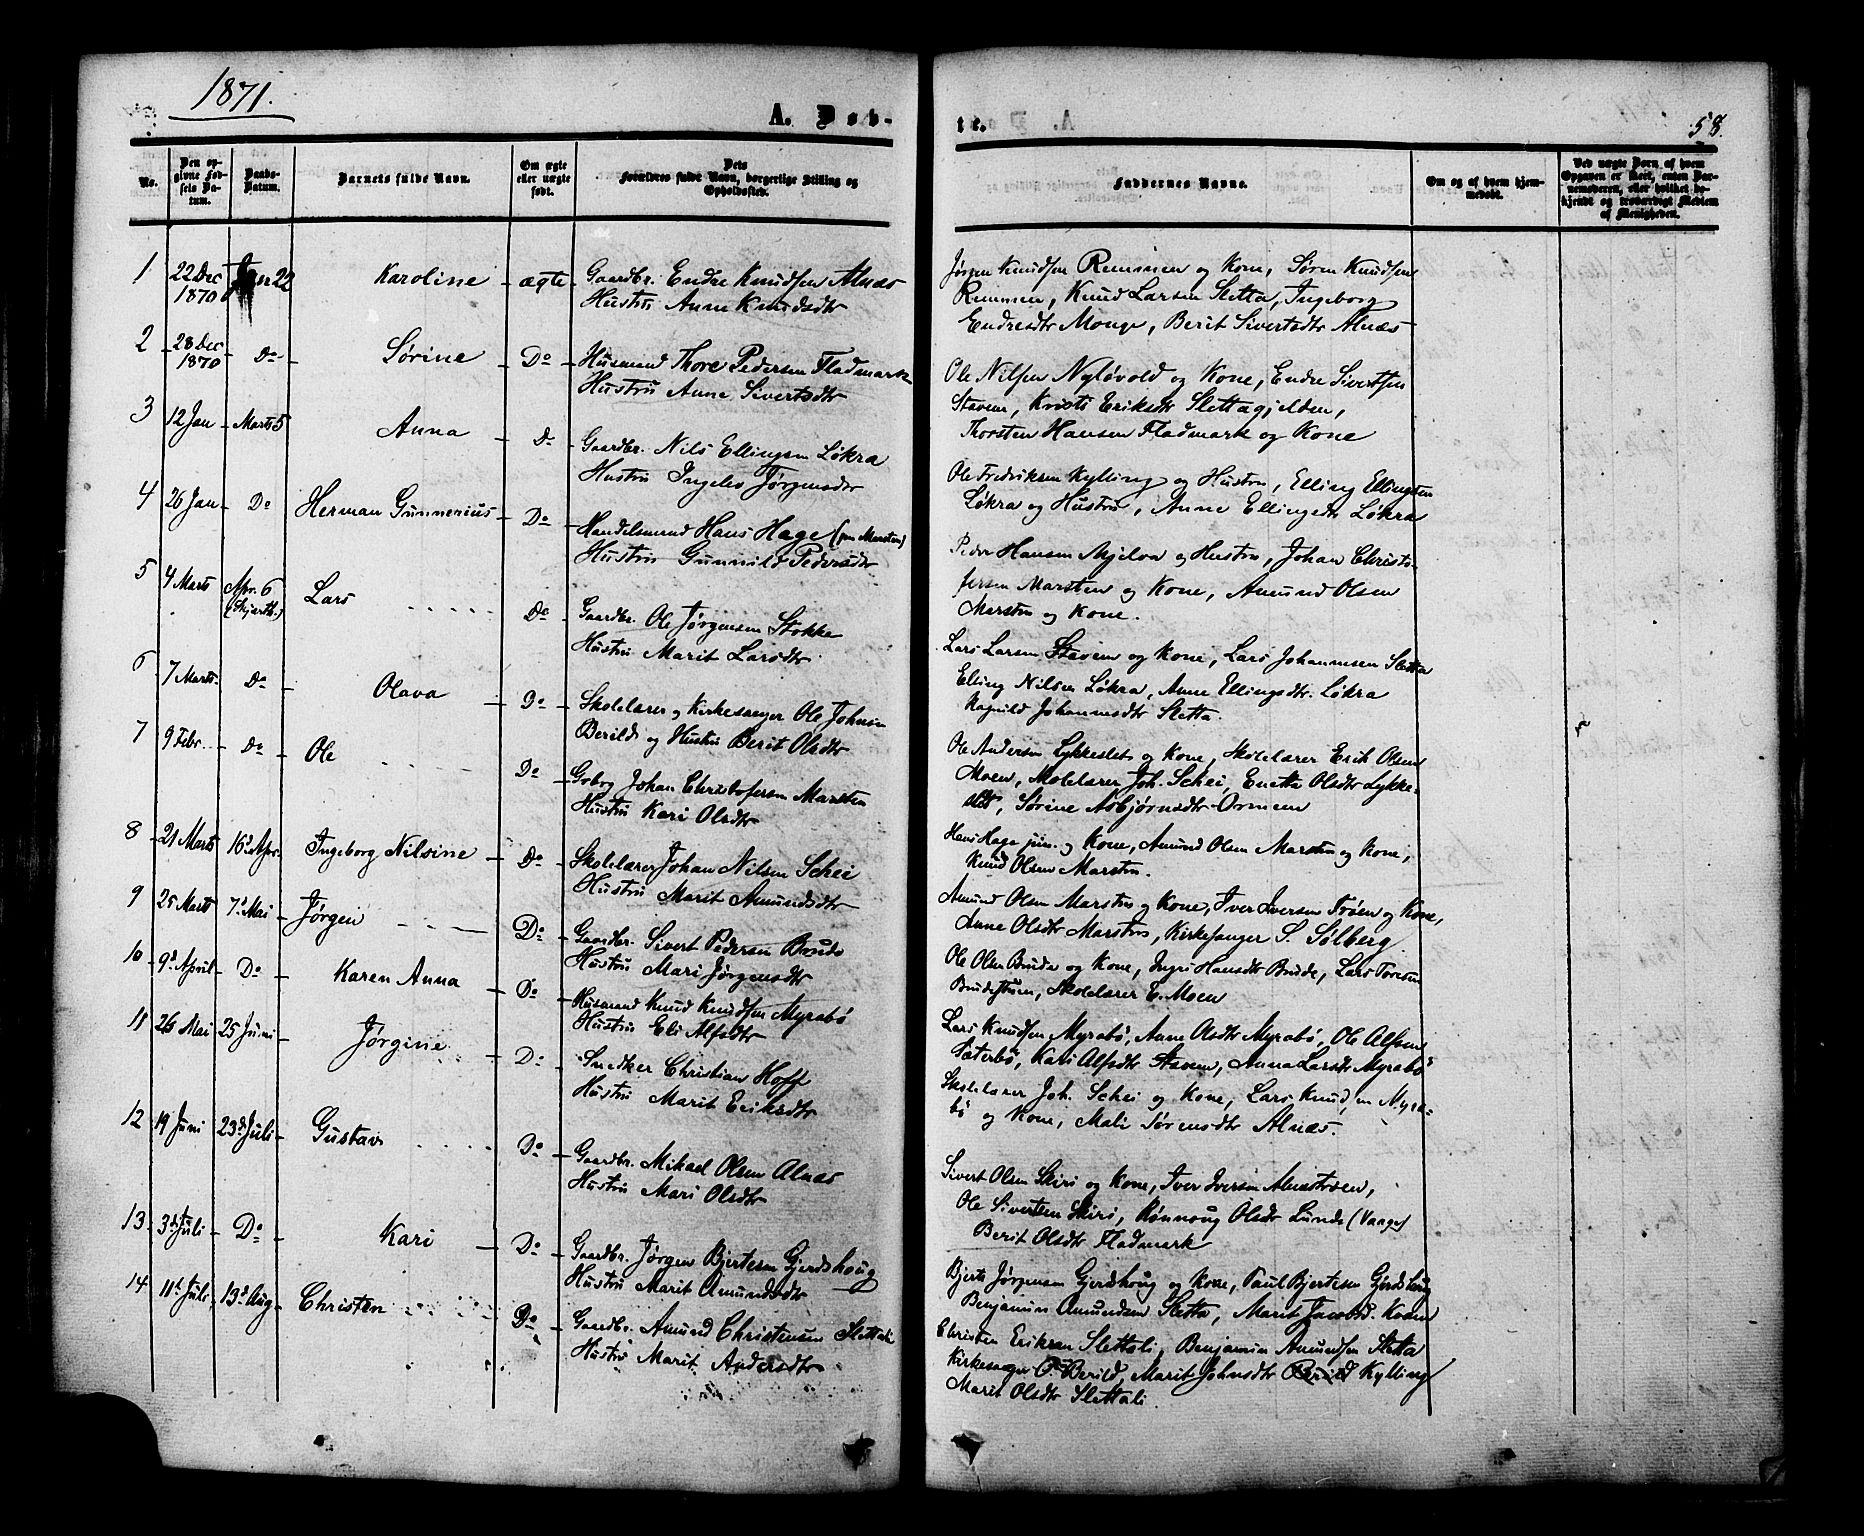 1871.
A. Døb-
No.
Den op-
givne Fød-
sels Da-
tum.
Daabs-
Datum.
Barnets fulde Navn.
Om ægte
eller uægte
født.
Dets
Forældres fulde Navn, borgerlige Stilling og
Opholdssted.
1 22 Dec 1870 Jan 22 Karoline ægte Gaardbr. Endre Knudsen Alnæs
Hustru Anne Knudsdtr
2 28 Dec 1870 Do Sørine Do Husmand Thore Pedersen Fladmark
Hustru Anne Sivertsdtr
3 12 Jan Marts 5 Anna Do Gaardbr. Nils Ellingsen Løkra
Hustru Ingelev Jørgensdtr
4 26 Jan Do Herman Gunnerius Do Handelsmand Hans Hage (paa Marsten)
Hustru Gunnild Pedersdtr
5 4 Marts Apr. 6 (Skjærth.) Lars Do Gaardbr. Ole Jørgensen Stokke
Hustru Marit Larsdtr
6 7 Marts Do Olava Do Skolelærer og Kirkesanger Ole Johnsen
Berild og Hustru Berit Olsdtr
7 9 Febr. Do Ole Do Gvbrg Johan Christofersen Marsten
Hustru Kari Olsdtr
8 21 Marts 16d Apr. Ingeborg Nilsine Do Skolelærer Johan Nilsen Schei
Hustru Marit Amundsdtr
9 25 Marts 7d Mai Jørgen Do Gaardbr. Sivert Pedersen Brude
Hustru Mari Jørgensdtr
10 9d April Do Karen Anna Do Husmand Knud Knudsen Myrabö
Hustru Eli Alfsdtr
11 26 Mai 25 Juni Jørgine Do Snedker Christian Hoff
Hustru Marit Eriksdtr
12 19 Juni 23d Juli Gustav Do Gaardbr. Mikael Olsen Alnæs
Hustru Mari Olsdtr
13. 3d Juli Do Kari Do Gaardbr. Jørgen Bjertesen Gjerdshoug
Hustru Marit Amundsdtr
14 11t Juli 13d Aug Christen Do Gaardbr. Amund Christensen Slettali
Hustru Marit Andersdtr
te.
58.
Faddernes Navne.
Om og af hvem hjem-
medøbt.
Ved uægte Børn af hvem
Opgaven er skeet, enten Bar-
nemoderen, eller hvilket be-
kjendt og troværdigt Medlem
af Menigheden.
Jørgen Knudsen Remmen og Kone, Søren Knudsen
Remmen, Knud Larsen Sletta, Ingeborg
Endresdtr Monge, Berit Sivertsdtr Alnæs
Ole Nilsen Nyløvold og Kone, Endre Sivertsen
Stavem, Kristi Eriksdtr Slettagjelden,
Thorsten Hansen Fladmark og Kone
Ole Fredriksen Kylling og Hustru, Elling Ellingsen
Løkra og Hustru, Anne Ellingsdtr Løkra
Peder Hansen Mjelva og Hustru, Johan Christo-
fersen Marsten og Kone, Amund Olsen
Marsten og Kone.
Lars Larsen Stavem og Kone, Lars Johannesen Sletta
Elling Nilsen Løkra, Anne Ellingsdtr. Løkra
Ragnild Johannesdtr Sletta.
Ole Andersen Lykkeslet og Kone, Skolelærer Erik Olsen
Moen, Skolelærer Joh. Schei, Enetta Olsdtr Lykke-
slet, Sørine Asbjørnsdtr Ormeen
Hans Hage jun. og Kone, Amund Olsen Marsten og Kone,
Knud Olsen Marsten.
Amund Olsen Marsten og Kone, Iver Iversen Trøen og Kone,
Anne Olsdtr Marsten, Kirkesanger S. Sølberg.
Ole Olsen Brude og Kone, Ingri Hansdtr Brude, Lars Toresen
Brudestuen, Skolelærer E. Moen
Lars Knudsen Myrabö, Anne Olsdtr Myrabö, Ole Alfsen
Säterbö, Kari Alfsdtr Stavem, Anna Larsdtr Myrabö
Skolelærer Joh. Schei og Kone, Lars Knudsen Myra-
bö og Kone, Mali Sørensdtr Alnæs.
Sivert Olsen Skiri og Kone, Iver Iversen Alnæstrøen,
Ole Sivertsen Skiri, Rønnoug Olsdtr Lunde (Vaage)
Berit Olsdtr Fladmark
Bjerte Jørgensen Gjerdshoug og Kone, Paul Bjertesen Gjerdshoug
Benjamin Amundsen Sletta, Marit Jacobsd. Kvam
Christen Eriksen Slettali, Benjamin Amundsen Sletta
Kirkesanger O. Berild, Marit Johnsdtr Berild Kylling
Marit Olsdtr Slettali.